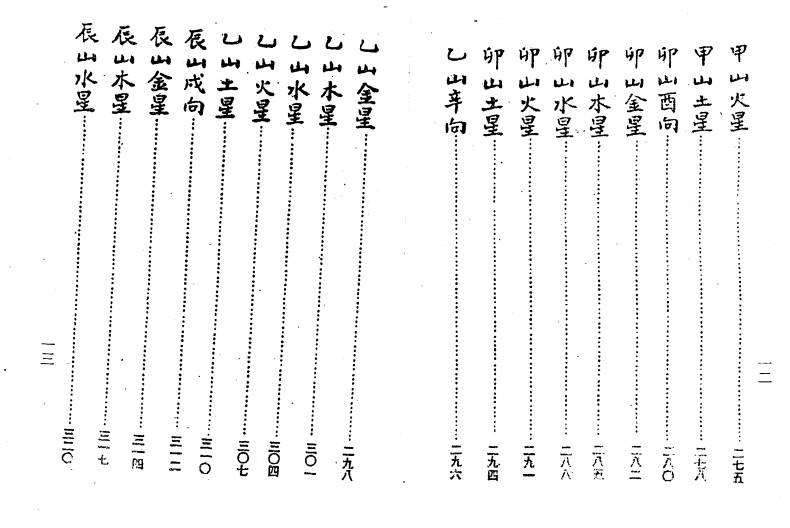 甲山火星……二七五
甲山土星……二七八
卯山酉向……二八〇
卯山金星……二八二
卯山木星……二八五
卯山水星……二八八
卯山火星……二九一
卯山土星……二九四
乙山辛向……二九六
一二
乙山金星……二九八
乙山木星……三〇一
乙山水星……三〇四
乙山火星……三〇七
乙山土星……三一〇
辰山戌向……三一二
辰山金星……三一四
辰山木星……三一七
辰山水星……三二〇
一三